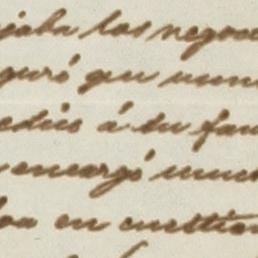 jaba los negoc
guró que nun
edió á su fam
encargó muc
ba en cuestion